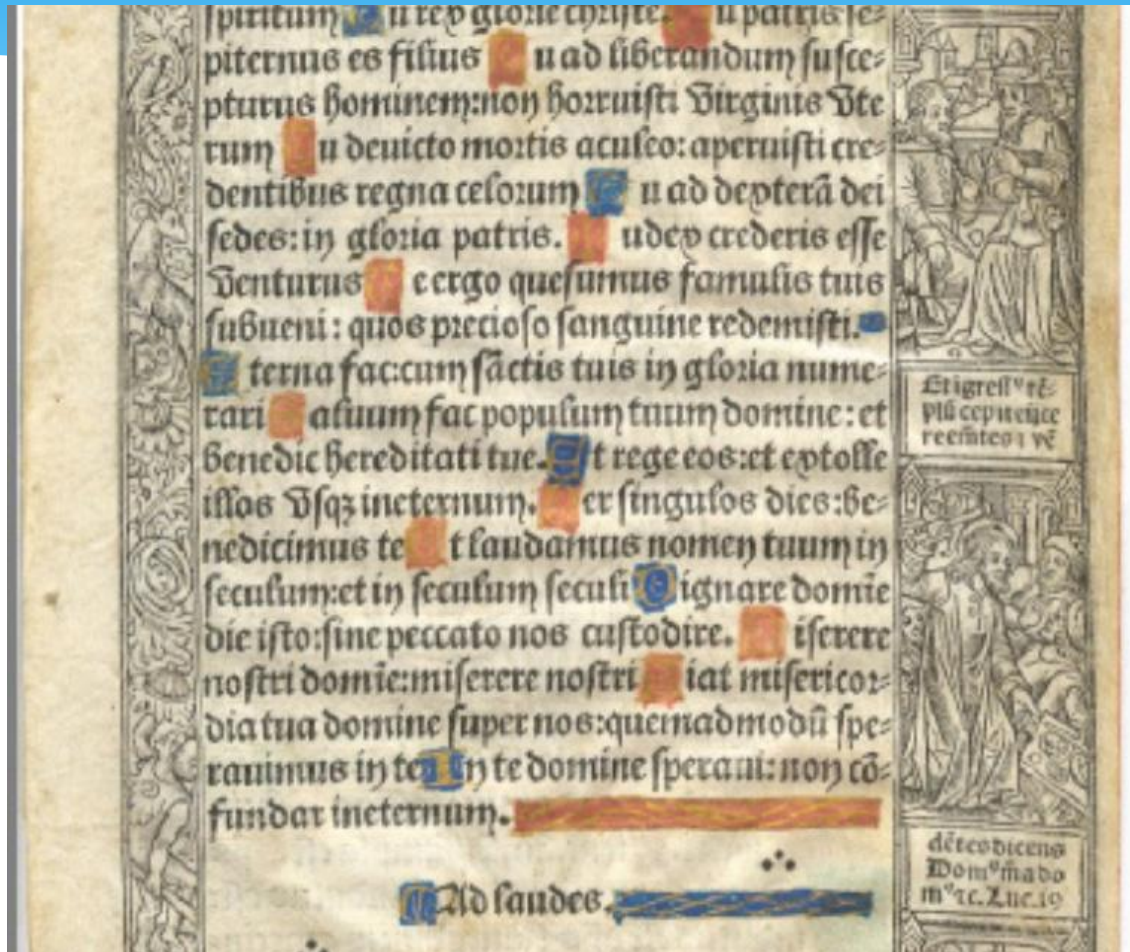 spiritum Tu rex glorie christe. Tu patris se-
piternus es filius Tu ad liberandum susce-
pturus hominem:non horruisti Virginis Vte
rum Tu deuicto mortis aculeo: aperuisti cre-
dentibus regna celorum Tu ad dexterā dei
sedes: in gloria patris. Iudex crederis esse
Venturus Te ergo quesumus famulis tuis
subueni : quos precioso sanguine redemisti.
Eterna fac:cum sāctis tuis in gloria nume-
rari Saluum fac populum tuum domine: et
benedic hereditati tue. Et rege eos:et extolle
illos Vsqꝫ ineternum. Per singulos dies:be-
nedicimus te Et laudamus nomen tuum in
seculum:et in seculum seculi Dignare domīe
die isto:sine peccato nos custodire. Miserere
nostri domīe:miserere nostri Fiat misericor-
dia tua domine super nos:quemadmodū spe-
rauimus in te In te domine speraui: non cō-
fundar ineternum.
Ad laudes.
Et īgressꝰ tē-
plū cepit eiice
re emētes ⁊ vē
dētes dicens
Domꝰ m̄a do
mꝰ ⁊c. Luc. 19